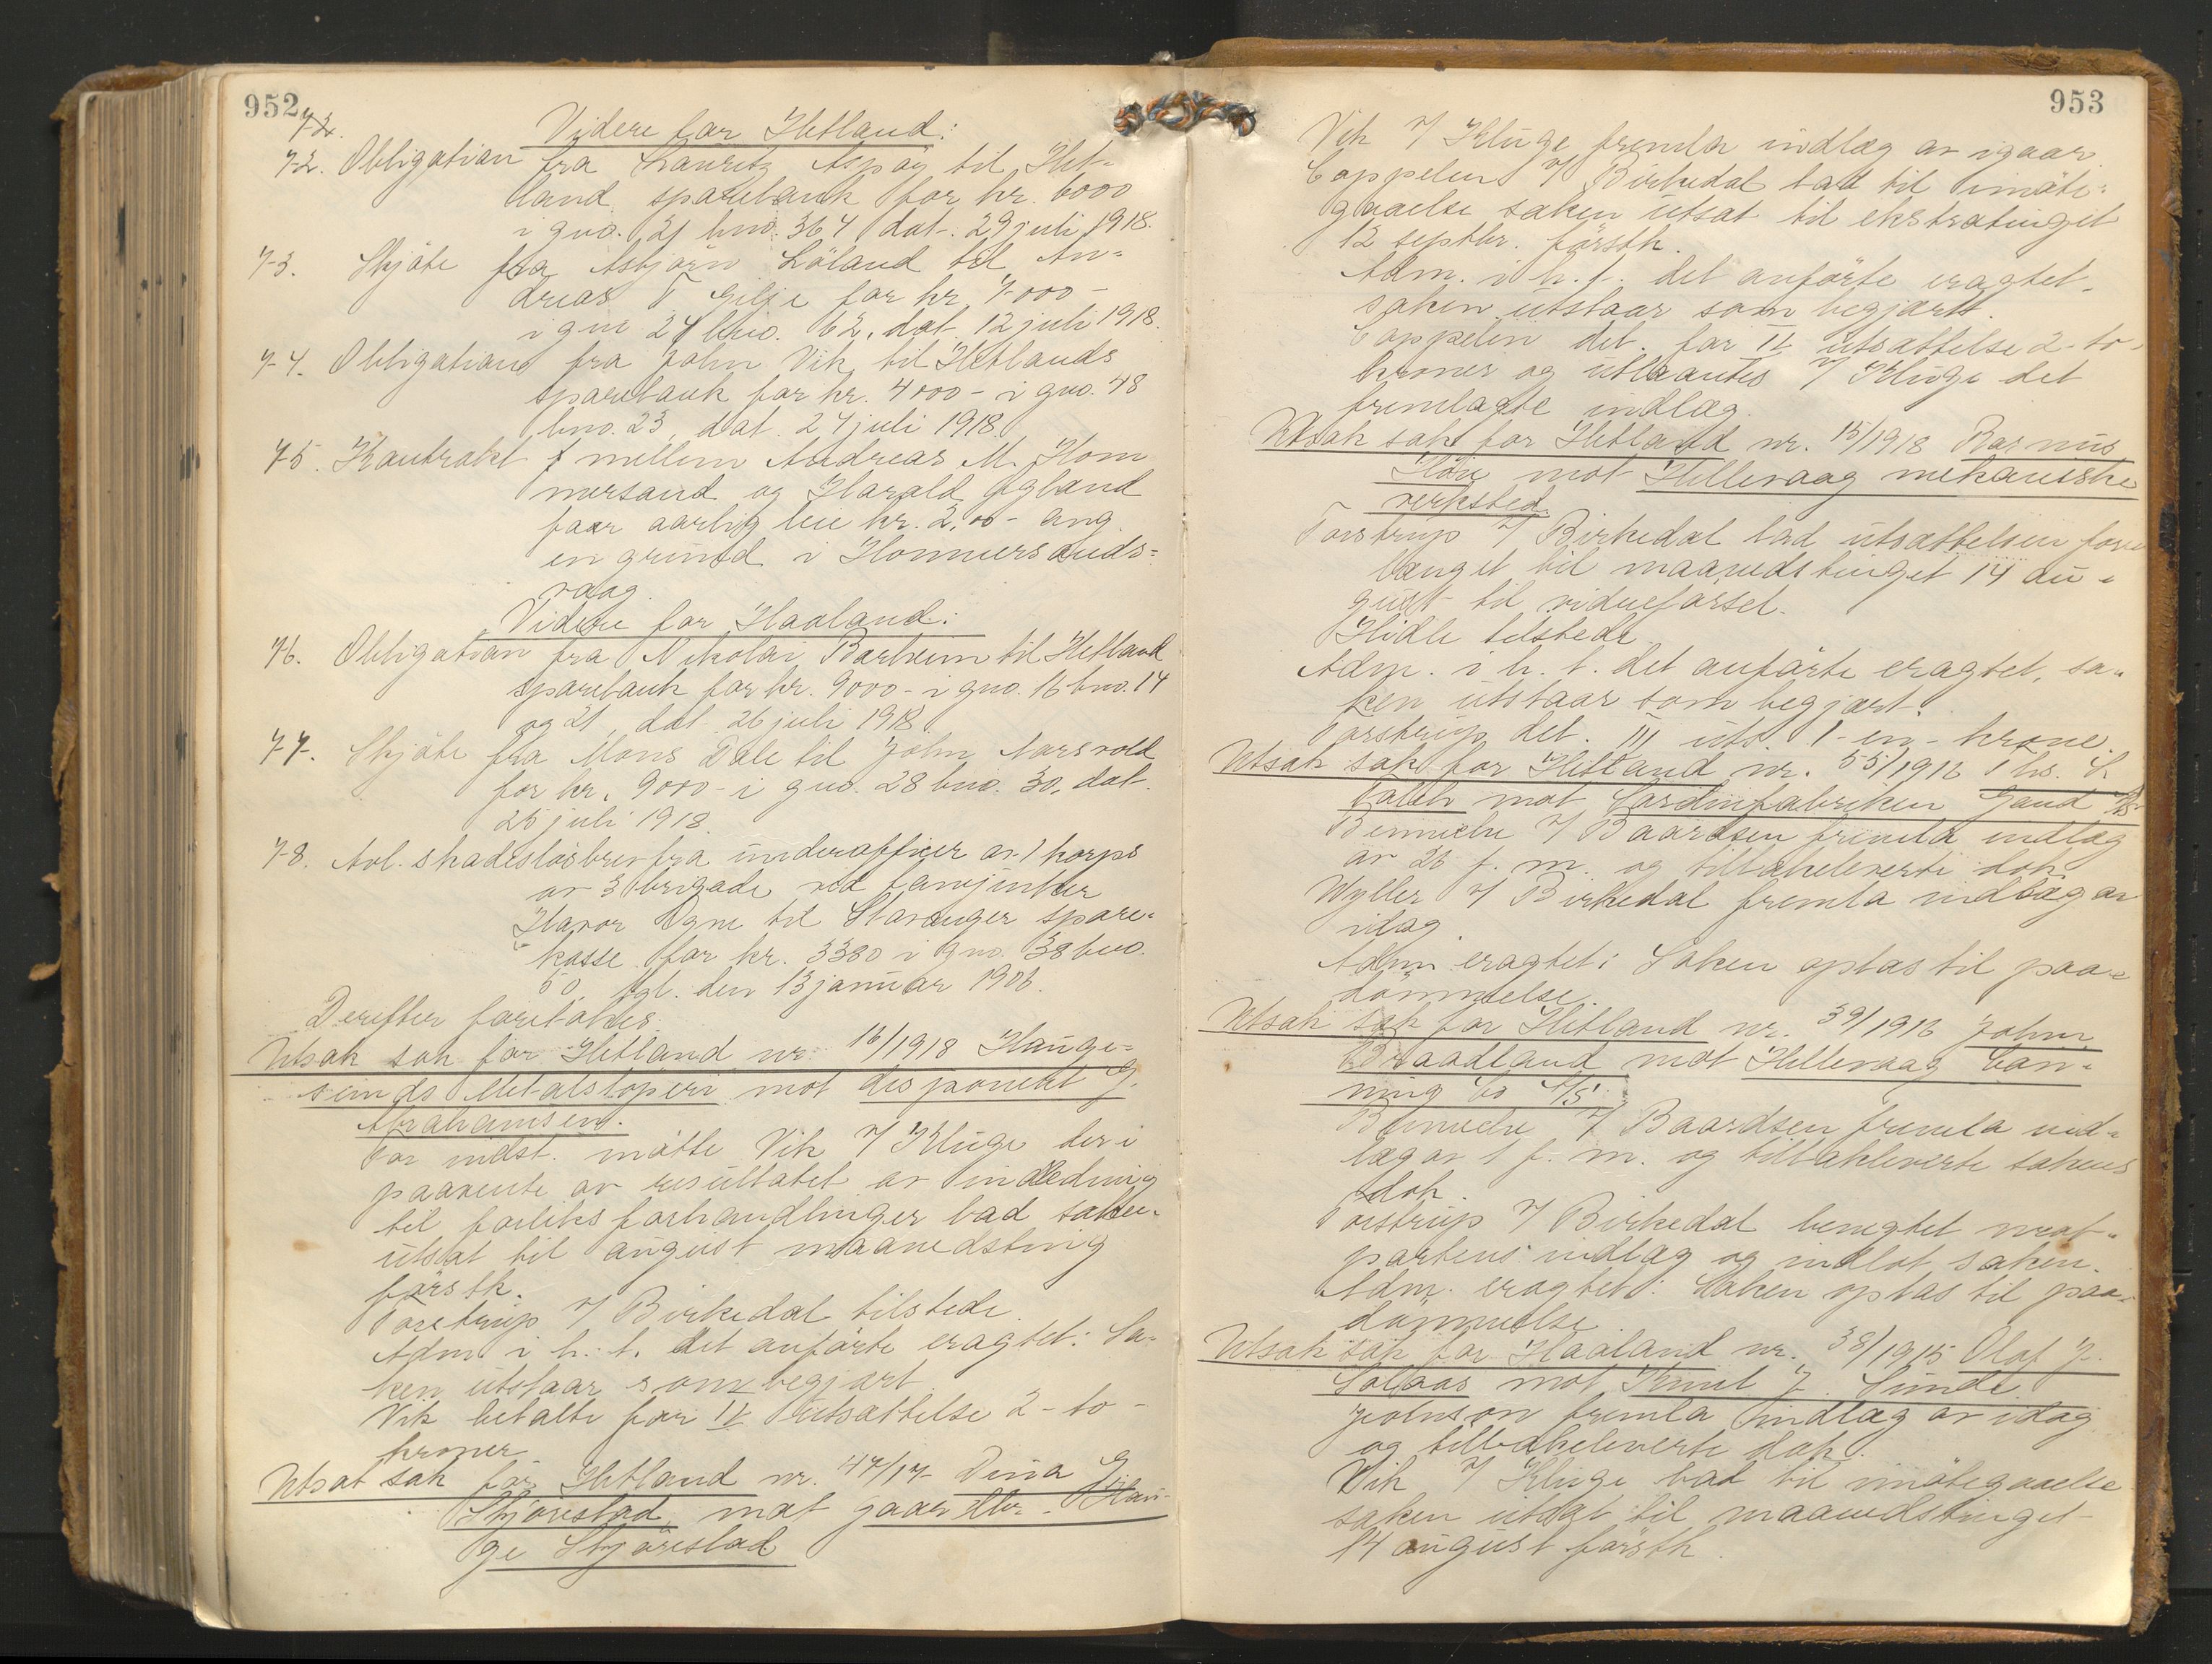 952
72.
Videre for Hetland:
72. Obligation fra Lauritz Aspøy til Het-
land sparebank for kr. 6000
i gno. 21 bno. 364 dat. 29 juli 1918.
73. Skjøte fra Asbjørn Løland til An-
dreas T Gilje for kr. 7000-
i gno 24 bno. 62, dat. 12 juli 1918.
74. Obligation fra John Vik til Hetlands
sparebank for kr. 4000- i gno. 48
bno. 23, dat. 24 juli 1918.
75. Kontrakt mellem Andreas M. Hom
mersand og Harald Ogland
paa aarlig leie kr. 2.00- ang.
en grund i Hommersands-
vaag.
Videre for Haaland:
76. Obligation fra Nikolai Barheim til Hetland
sparebank for kr. 9000- i gno. 16 bno. 14
og 21, dat. 26 juli 1918.
77. Skjøte fra Mons Dale til John Aarsvold
for kr. 9000- i gno. 28 bno. 30, dat.
25 juli 1918.
78. Avl. skadesløsbrev fra underofficer av 1 korps
av 3 brigade ved fanejunker
Havor Ogne til Stavanger spare-
kasse for kr. 3380 i gno. 38 bno.
50, tgl. den 13 januar 1906.
Derefter foretokes:
Utsat sak for Hetland nr. 16/1918 Hauge-
sunds Metalstøperi mot disponent G.
Abrahamsen.
For indst. møtte Vik v/ Kluge der i
paavente av resultatet av indledning
til forliksforhandlinger bad saken
utsat til august maanedsting
førstk.
Torstrup v/ Birkedal tilstede.
Adm. i h. t. det anførte eragtet: Sa-
ken utstaar som begjært.
Vik betalte for IV utsættelse 2-to-
kroner.
Utsat sak for Hetland nr. 47/17 Dina G
Skjørestad mot gaardbr. Hau-
ge Skjørestad
953
Vik v/ Kluge fremla indlæg av igaar.
Cappelen v/ Birkedal bad til imøte-
gaaelse saken utsat til ekstratinget
12 septbr. førstk.
Adm. i h. t. det anførte eragtet.
saken utstaar som begjært.
Cappelen bet. for IV utsættelse 2-to-
kroner og utlaantes v/ Kluge det
fremlagte indlæg.
Utsat sak for Hetland nr. 15/1918 Rasmus
Høie mot Hillevaag mekaniske
verksted.
Torstrup v/ Birkedal bad utsættelsen for
længet til maanedstinget 14 au-
gust til vidneførsel.
Hidle tilstede.
Adm. i h. t. det anførte eragtet, sa-
ken utstaar som begjært.
Torstrup bet. III uts. 1-en-krone.
Utsat sak for Hetland nr. 55/1916 Ths. S.
Falck mot Sardinfabriken Gand A/S
Bennetter v/ Baardsen fremla indlæg
av 26 f. m. og tilbakeleverte dok.
Wyller v/ Birkedal fremla indlæg av
idag.
Adm. eragtet: Saken optas til paa-
dømmelse.
Utsat sak for Hetland nr. 39/1916 John
Braadland mot Hillevaag Can-
ning Co A/S.
v/ Baardsen fremla ind-
læg av 1 f. m. og tilbakleverte sakens
dok.
Torstrup v/ Birkedal benegtet mot-
partens indlæg og indlot saken.
Adm. eragtet: Saken optas til paa-
dømmelse.
Utsat sak for Haaland nr. 38/1915 Olaf J.
Solaas mot Knut J. Sunde.
Johnson fremla indlæg av idag
og tilbakeleverte dok.
Vik v/ Kluge bad til imøtegaaelse
saken utsat til maanedstinget
14 august førstk.